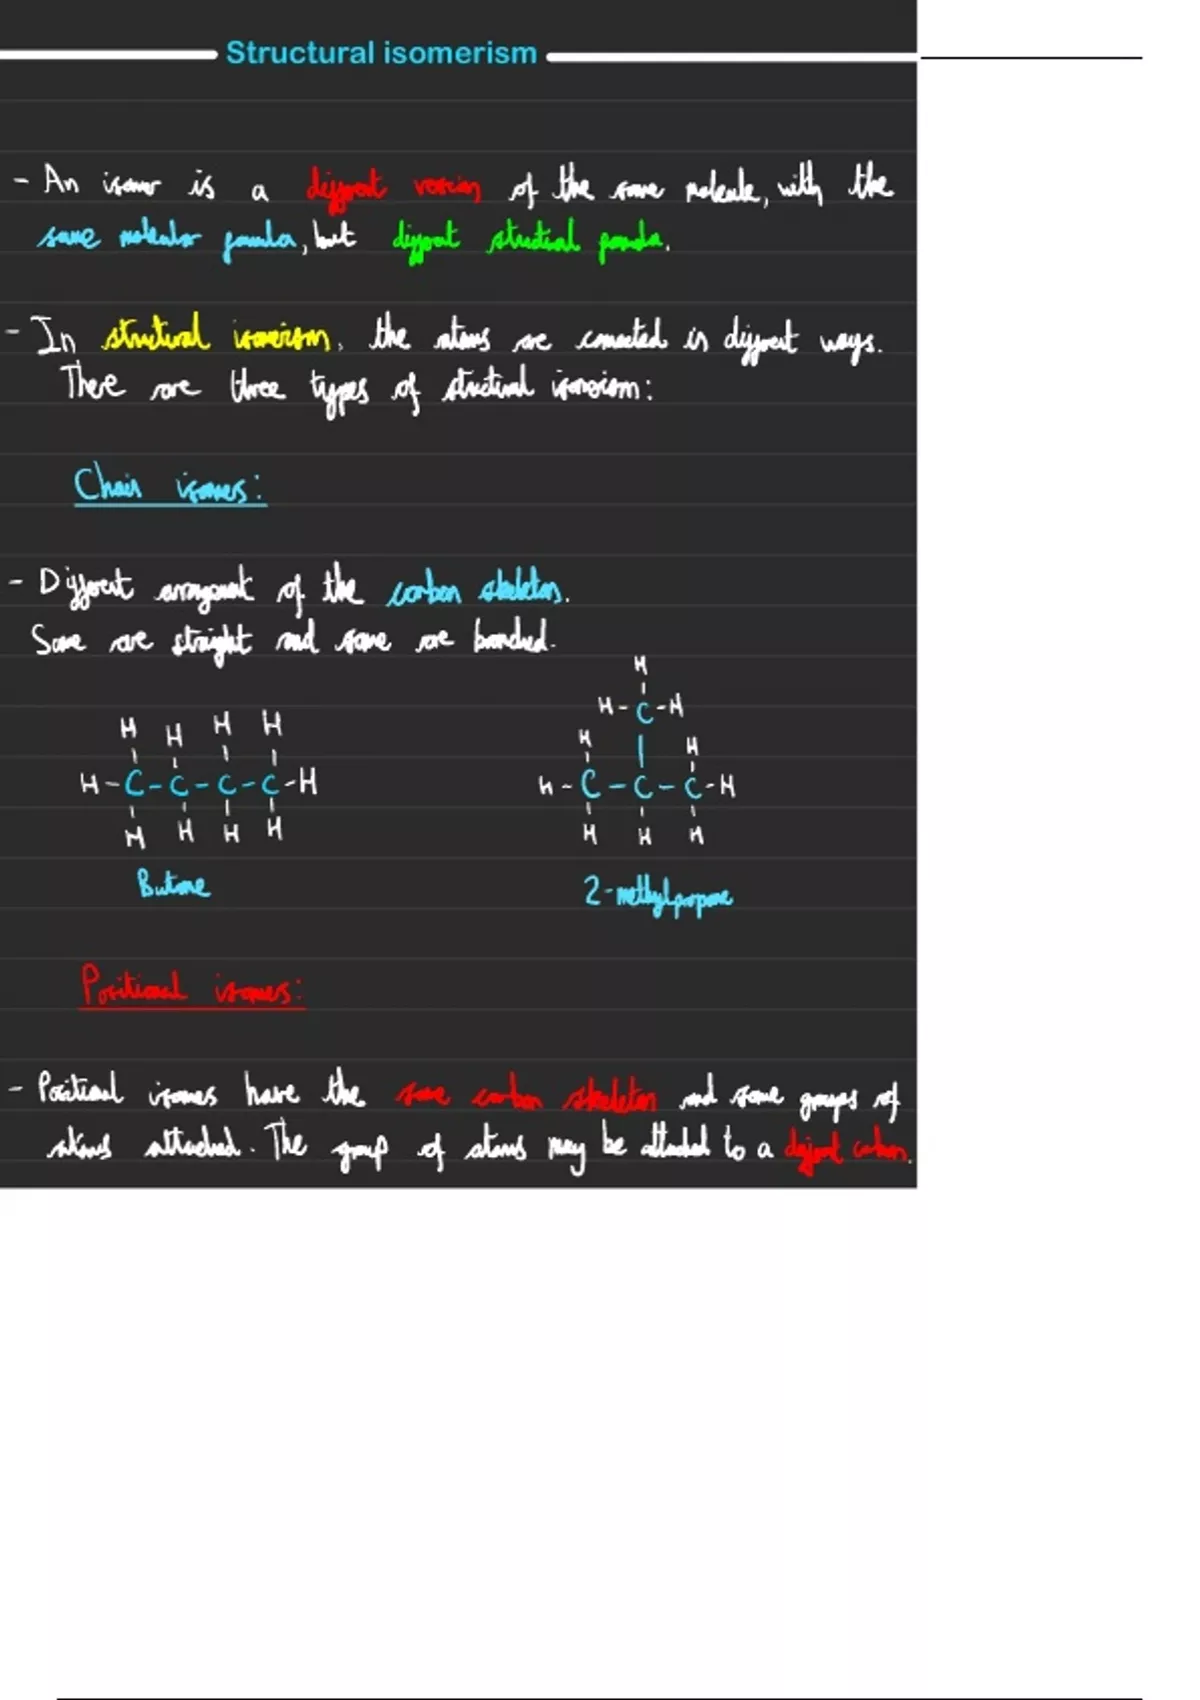 Structural isomerism
- An isomer is a different version of the same molecule, with the
same molecular formula, but different structural formula.
- In structural isomerism, the atoms are connected in different ways.
There are three types of structural isomerism:
Chain isomers:
- Different arrangement of the carbon skeleton.
Some are straight and some are branched.
H
H - C - H
H H H H
H H
H - C - C - C - C - H
H - C - C - C - H
H H H H
H H H
Butane
2-methylpropane
Positional isomers:
- Positional isomers have the same carbon skeleton and same groups of
atoms attached. The group of atoms may be attached to a different carbon.